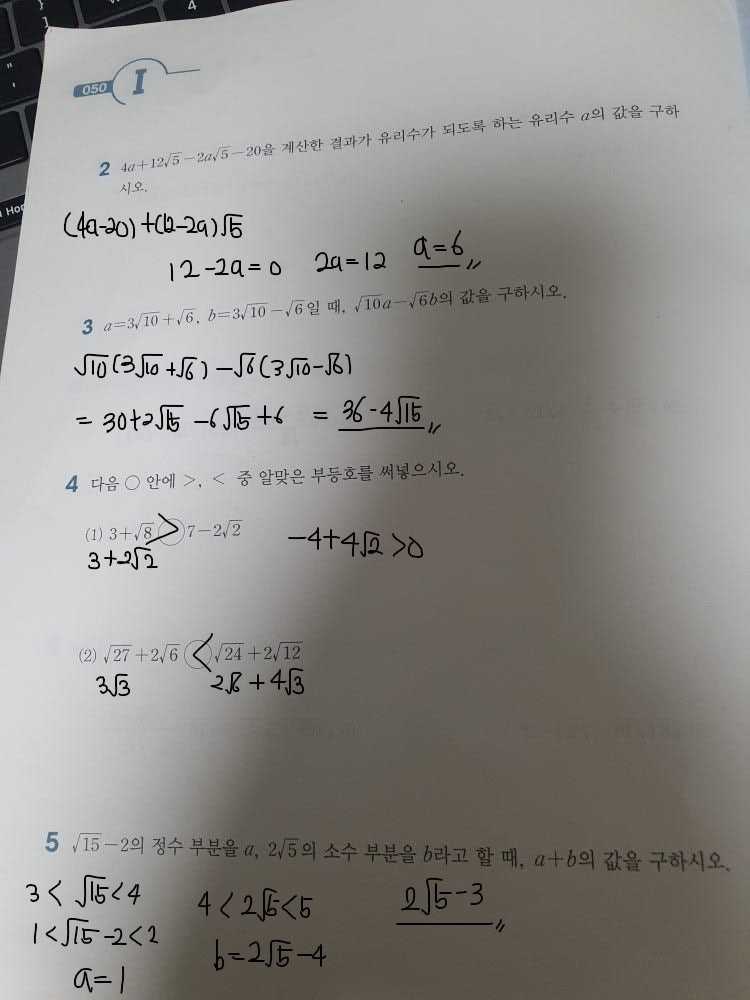 050 I
2 4a+12√5−2a√5−20을 계산한 결과가 유리수가 되도록 하는 유리수 a의 값을 구하
시오.
(4a-20)+(12-2a)√5
12-2a=0 2a=12 a=6
3 a=3√10+√6, b=3√10−√6일 때, √10a−√6b의 값을 구하시오.
√10(3√10+√6)-√6(3√10-√6)
= 30+2√15-6√15+6 = 36-4√15
4 다음 ○ 안에 >, < 중 알맞은 부등호를 써넣으시오.
(1) 3+√8 > 7−2√2 -4+4√2>0
3+2√2
(2) √27+2√6 < √24+2√12
3√3 2√6+4√3
5 √15−2의 정수 부분을 a, 2√5의 소수 부분을 b라고 할 때, a+b의 값을 구하시오.
3<√15<4 4<2√5<5 2√5-3
1<√15-2<2 b=2√5-4
a=1